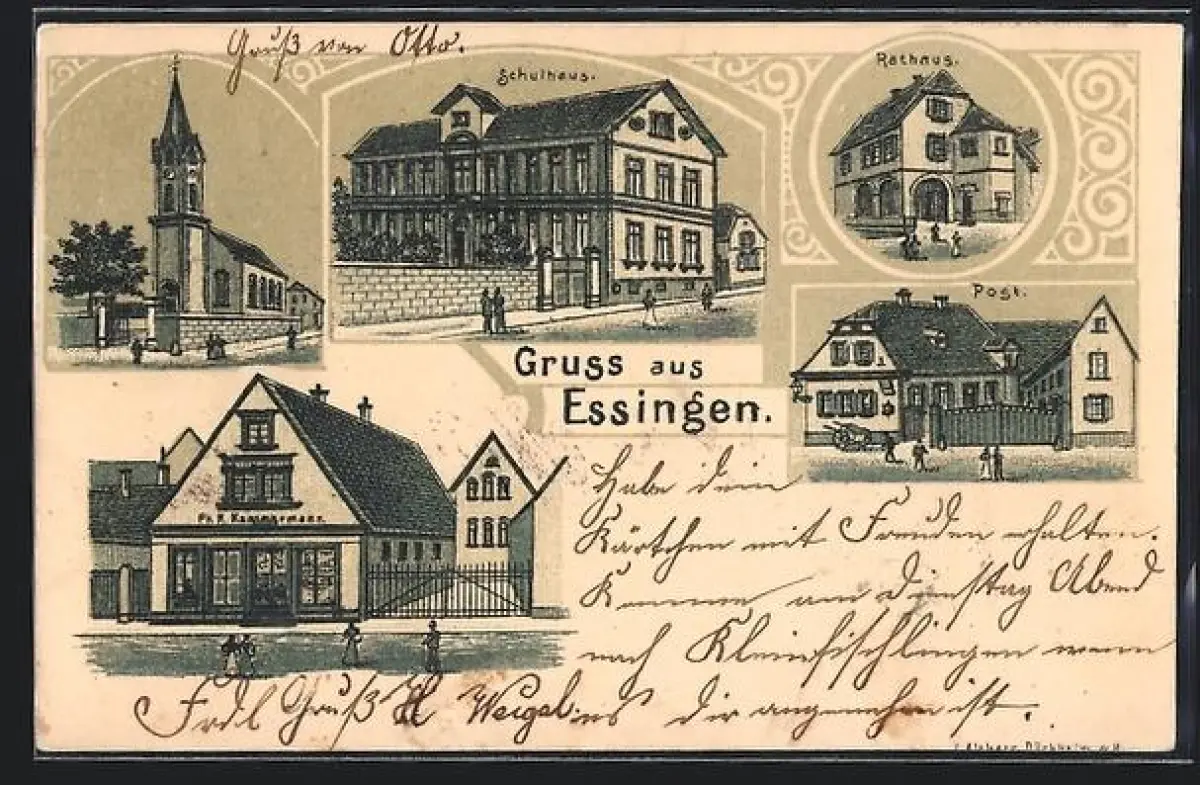 Gruß von Otto.
Schulhaus.
Rathaus.
Post.
Gruss aus
Essingen.
Ph. K.
Habe dein
Kärtchen mit Freuden erhalten.
Komme am Dienstag Abend
nach Kleinfischlingen wenn
es dir angenehm ist.
Frdl Gruß H Weigel